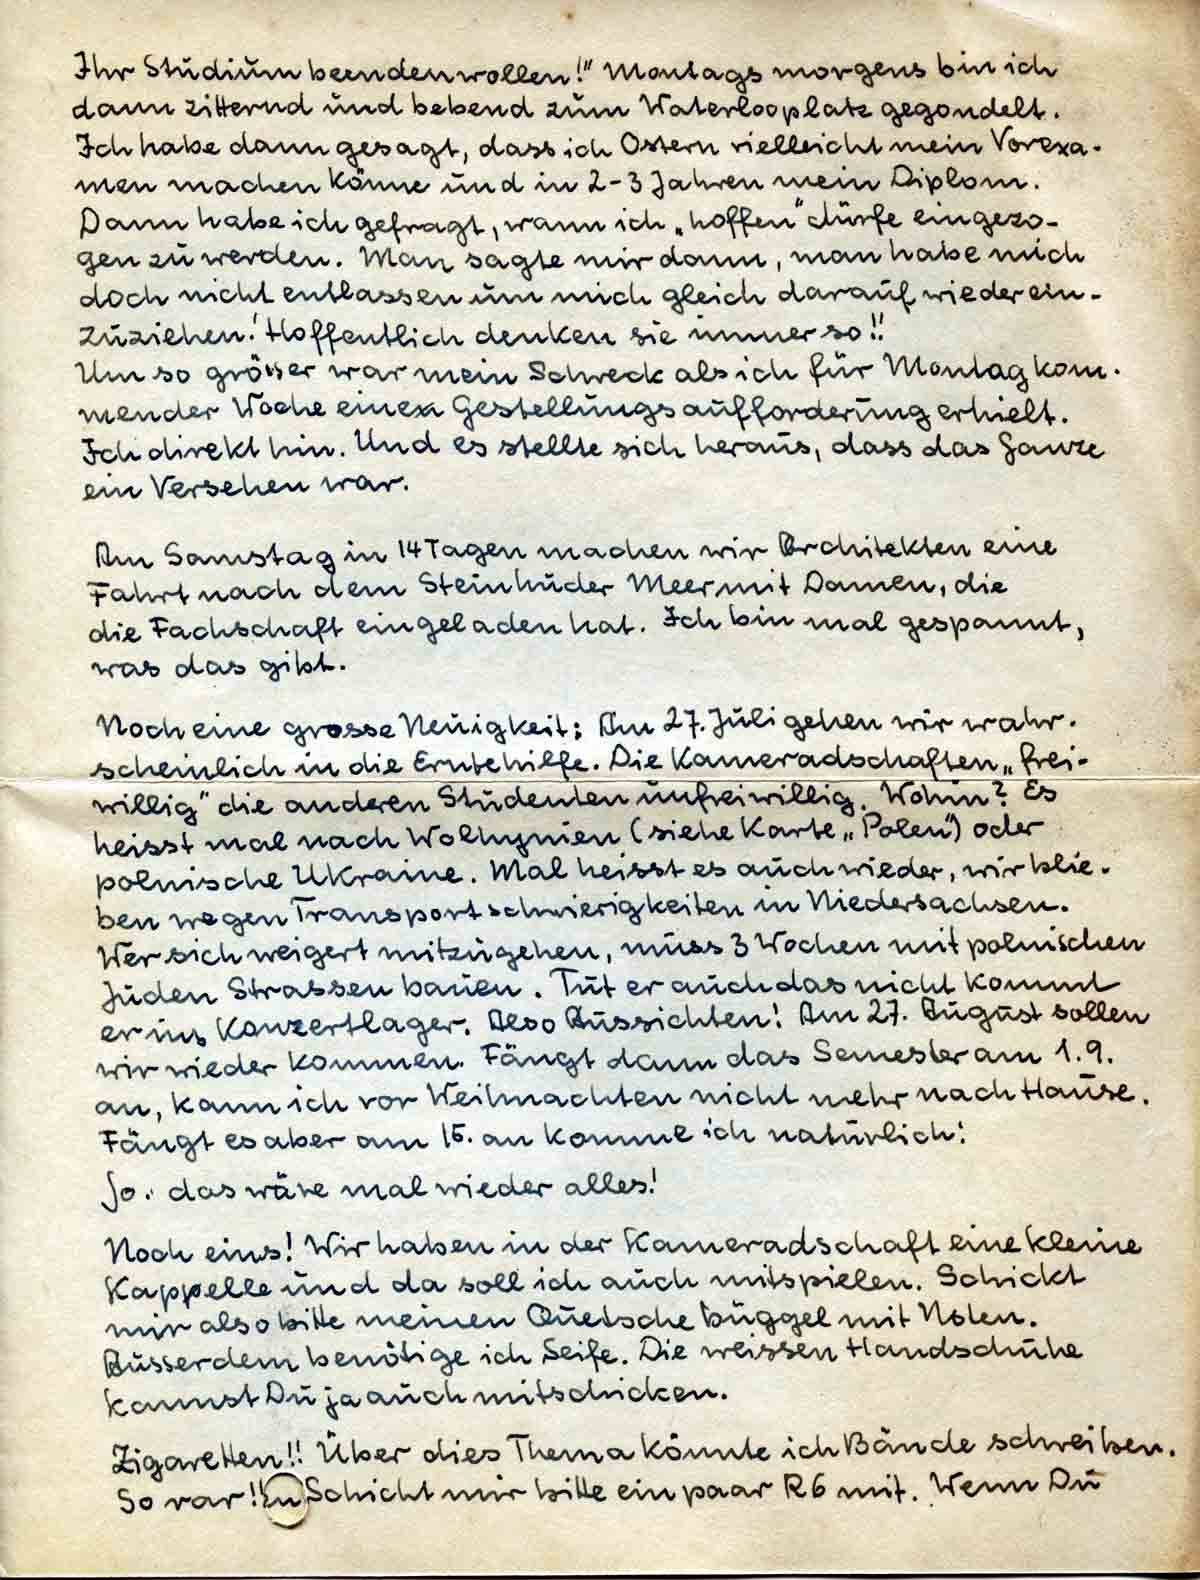 Ihr Studium beenden wollen!" Montags morgens bin ich
dann zitternd und bebend zum Waterlooplatz gegondelt.
Ich habe dann gesagt, dass ich Ostern vielleicht mein Vorexa-
men machen könne und in 2-3 Jahren mein Diplom.
Dann habe ich gefragt, wann ich „hoffen" dürfe eingezo-
gen zu werden. Man sagte mir dann, man habe mich
doch nicht entlassen um mich gleich darauf wieder ein-
zuziehen! Hoffentlich denken sie immer so!!
Um so grösser war mein Schreck als ich für Montag kom-
mender Woche einen Gestellungsaufforderung erhielt.
Ich direkt hin. Und es stellte sich heraus, dass das Ganze
ein Versehen war.
Am Samstag in 14 Tagen machen wir Architekten eine
Fahrt nach dem Steinhuder Meer mit Damen, die
die Fachschaft eingeladen hat. Ich bin mal gespannt,
was das gibt.
Noch eine grosse Neuigkeit: Am 27. Juli gehen wir wahr-
scheinlich in die Erntehilfe. Die Kameradschaften „frei-
willig" die anderen Studenten unfreiwillig. Wohin? Es
heisst mal nach Wolhynien (siehe Karte „Polen") oder
polnische Ukraine. Mal heisst es auch wieder, wir blie-
ben wegen Transportschwierigkeiten in Niedersachsen.
Wer sich weigert mitzugehen, muss 3 Wochen mit polnischen
Juden Strassen bauen. Tut er auch das nicht kommt
er ins Konzertlager. Also Aussichten! Am 27. August sollen
wir wieder kommen. Fängt dann das Semester am 1.9.
an, kann ich vor Weihnachten nicht mehr nach Hause.
Fängt es aber am 15. an komme ich natürlich!
So. das wäre mal wieder alles!
Noch eins! Wir haben in der Kameradschaft eine kleine
Kappelle und da soll ich auch mitspielen. Schickt
mir also bitte meinen Quetsche büggel mit Noten.
Ausserdem benötige ich Seife. Die weissen Handschuhe
kannst Du ja auch mitschicken.
Zigaretten!! Über dies Thema könnte ich Bände schreiben.
So rar!! Schickt mir bitte ein paar R6 mit. Wenn Du